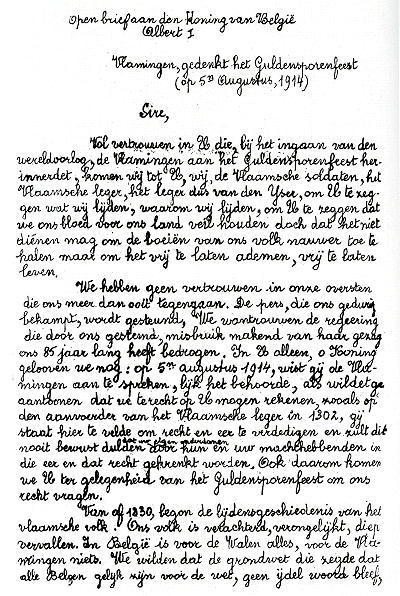 Open brief aan den Koning van België
Albert I
Vlamingen, gedenkt het Guldensporenfeest
(op 5n Augustus, 1914)
Sire,
Vol vertrouwen in U die, bij het ingaan van den
wereldoorlog, de Vlamingen aan het Guldensporenfeest her-
innerdet, komen wij tot U, wij, de Vlaamsche soldaten, het
Vlaamsche leger, het leger dus van den Yser, om U te zeg-
gen wat wij lijden, waarom wij lijden, om U te zeggen dat
we ons bloed voor ons land veil houden doch dat het niet
dienen mag om de boeiën van ons volk nauwer toe te
halen maar om het vrij te laten ademen, vrij te laten
leven.
We hebben geen vertrouwen in onze oversten
die ons meer dan ooit tegengaan. De pers, die ons gedurig
bekampt, wordt gesteund. We wantrouwen de regeering
die door ons gestemd, misbruik makend van haar gezag
ons 85 jaar lang heeft bedrogen. In U alleen, o Koning
gelooven we nog: op 5n augustus 1914, wist gij de Vla-
mingen aan te spreken, lijk het behoorde, als wildet ge
aantoonen dat we terecht op U mogen rekenen, zooals op
den aanvoerder van het Vlaamsche leger in 1302, gij
staat hier te velde om recht en eer te verdedigen en zult dit
nooit bewust dulden door hun en uw machthebbenden in
die eer en dat recht gekrenkt worden. Ook daarom komen
we U ter gelegenheid van het Guldensporenfeest om ons
recht vragen.
Van af 1830, begon de lijdensgeschiedenis van het
vlaamsche volk. Ons volk is verachterd, verongelijkt, diep
vervallen. In België is voor de Walen alles, voor de Vla-
mingen niets. We wilden dat de grondwet die zegde dat
alle Belgen gelijk zijn voor de wet, geen ijdel woord bleef,